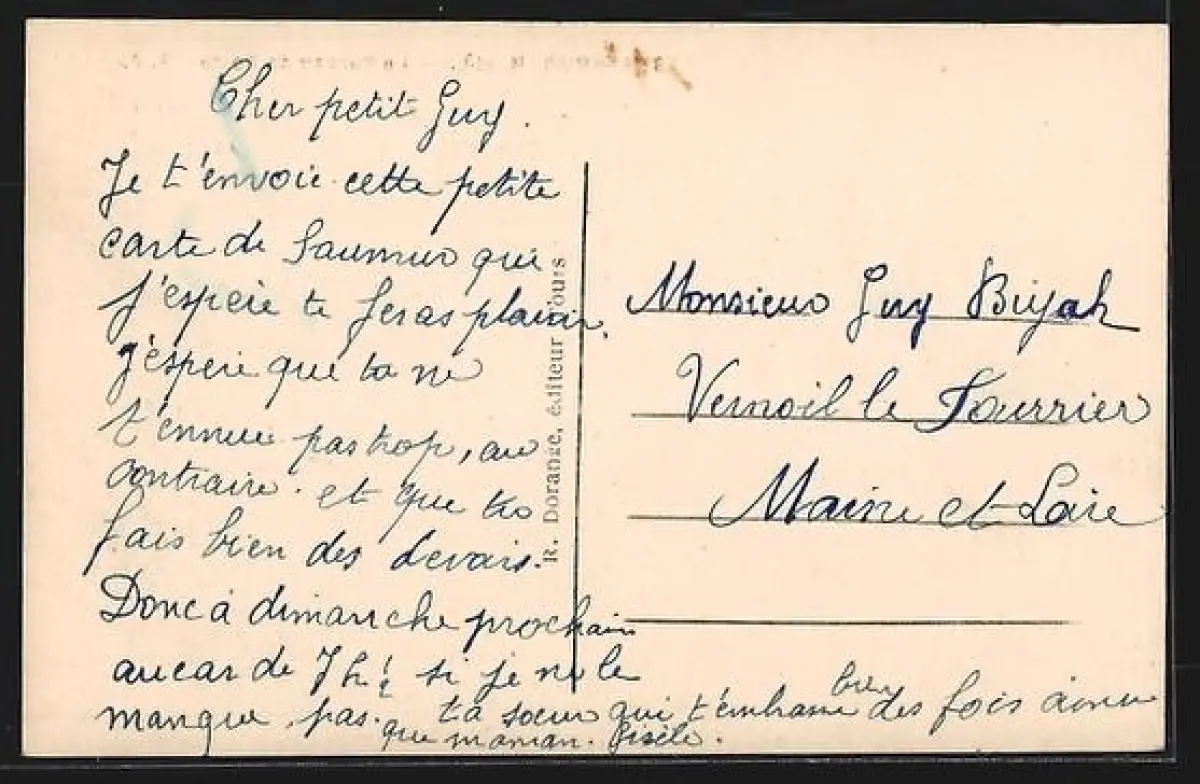 Cher petit Guy.
Je t'envoie cette petite
carte de Saumur que
j'espère te feras plaisir,
j'espère que tu ne
t'ennuie pas trop, au
contraire. et que tu
fais bien des devoirs.
Donc à dimanche prochain
au car de 7h ½ si je ne le
manque pas. ta sœur qui t'embrasse bien des fois ainsi
que maman. Gisèle.
R. Dorange, éditeur Tours
Monsieur Guy
Vernoil le Fourrier
Maine et Loire